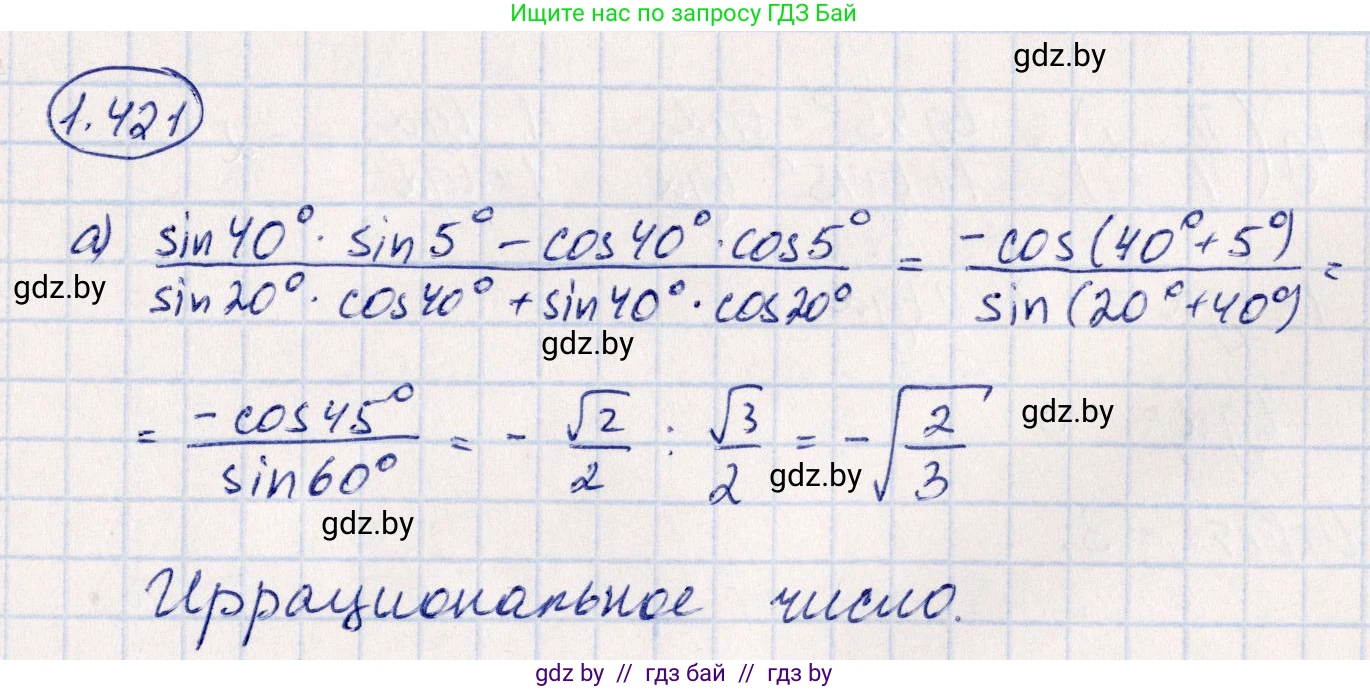 Ищите нас по запросу ГДЗ Бай
gdz.by
1.421
а) sin40°· sin5° − cos40°· cos5° / sin20°· cos40° + sin40°· cos20° = −cos(40°+5°) / sin(20°+40°) =
gdz.by
gdz.by
= −cos45° / sin60° = − √2/2 : √3/2 = −√(2/3)
gdz.by
gdz.by
gdz.by
Иррациональное число.
gdz.by // гдз бай // гдз by